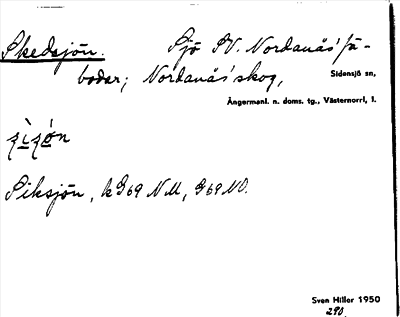 Skedsjön. Sjö SV. Nordanås' fä-
bodar; Nordanås' skog, Sidensjö sn,
Ångermanl. n. doms. tg., Västernorrl. l.
Siksjön, k G69 NM, G69 NO.
Sven Hiller 1950
290.